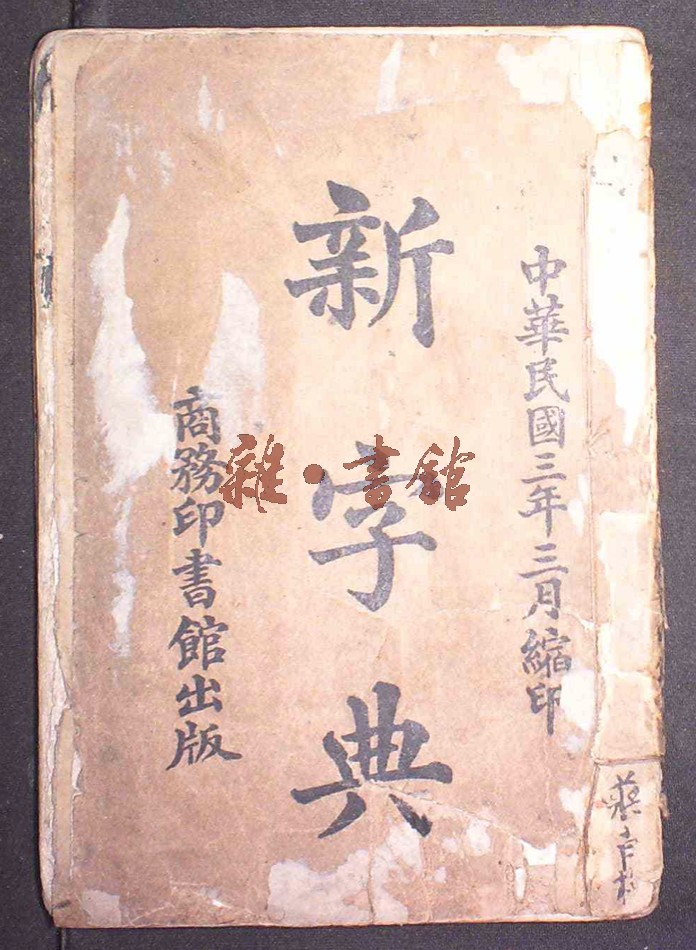 中華民國三年三月縮印
新字典
商務印書館出版
雜·書館